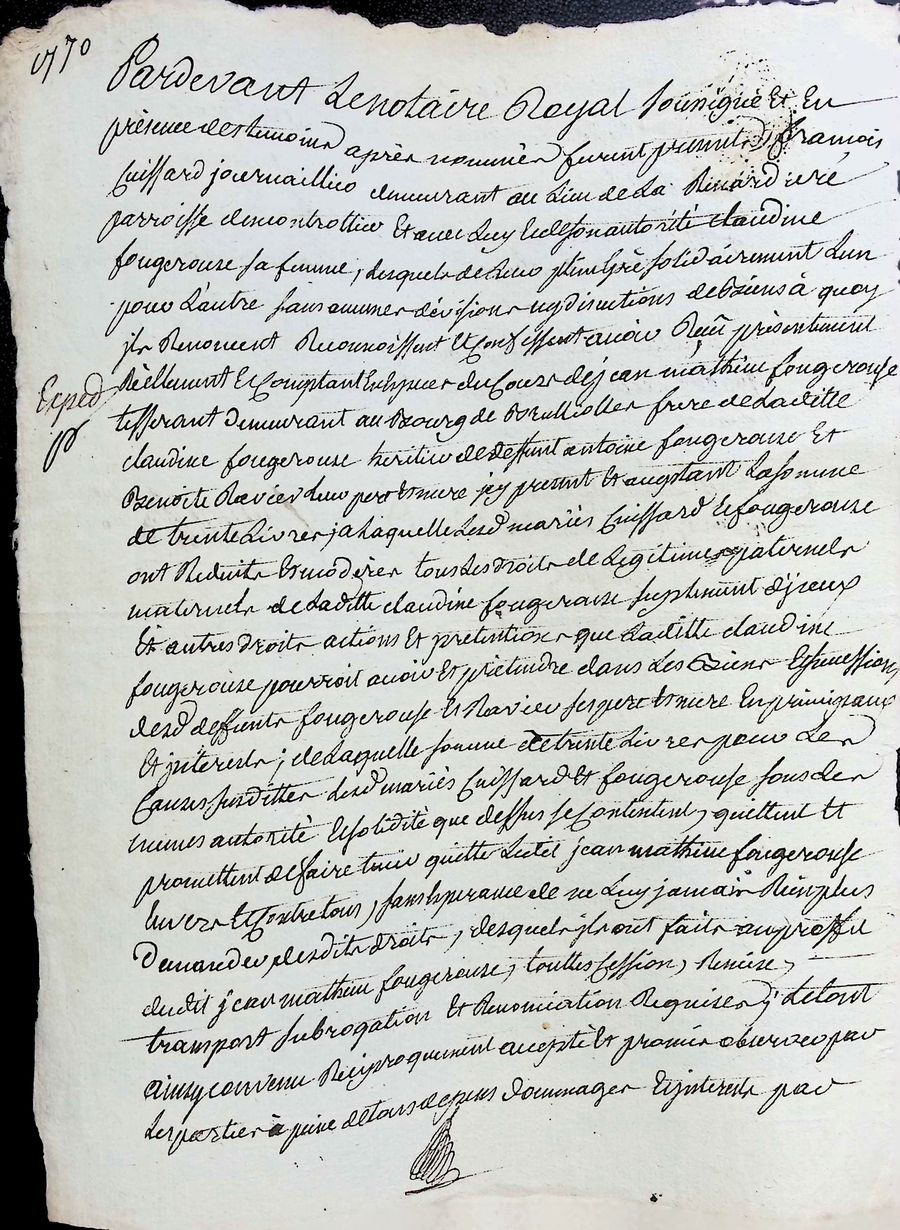 1770
Pardevant Le notaire Royal soussigné Et En
présence des temoins après nommés furent presents françois
Cuissard journaillier demeurant au Lieu de La Renardière
parroisse Et avec Luy Et de son autorité claudine
fougerouse sa femme, Lesquels de Leur plein gré solidairement L'un
pour L'autre sans aucunes divisions ny discutions de Biens à quoy
ils Renoncent Reconnoissent Et Confessent avoir Reçü présentement
Réellement Et Comptant En Espèces du Cours de jean mathieu fougerouse
Exped
tisserant Demeurant au Bourg de frere de Laditte
claudine fougerouse heritier de deffunt antoine fougerouse Et
Benoite Ravier Leur pere Et mere jcy present Et aceptant La somme
de trente Livres, a Laquelle Lesd mariés Cuissard Et fougerouse
ont Reduits Et modérés tous Les Droits de Legitimes paternels
maternels de Laditte claudine fougerouse suplement d'jceux
Et autres droits actions Et pretentions que Laditte claudine
fougerouse pourroit avoir Et prétendre dans Les Biens Et sucession
desd deffunts fougerouse Et Ravier ses pere Et mere En principaux
Et jntérests; de Laquelle somme de trente Livres pour Les
Causes susdittes Lesd mariés Cuissard Et fougerouse sous Les
memes autorité Et solidité que dessus se Contentent, quittent Et
promettent de faire tenir quitte Ledit jean mathieu fougerouse
Envers Et Contre tous, sans Esperance de ne Luy jamais Rien plus
Demander desdits droits, desquels ils ont faits au proffit
dudit jean mathieu fougerouse, touttes Cession, Remise,
transport subrogation Et Renonciation Requises, Letout
ainsy convenu Réciproquement accepté Et promis observer par
Les parties à peine de tous depens Dommages Et jnterests par